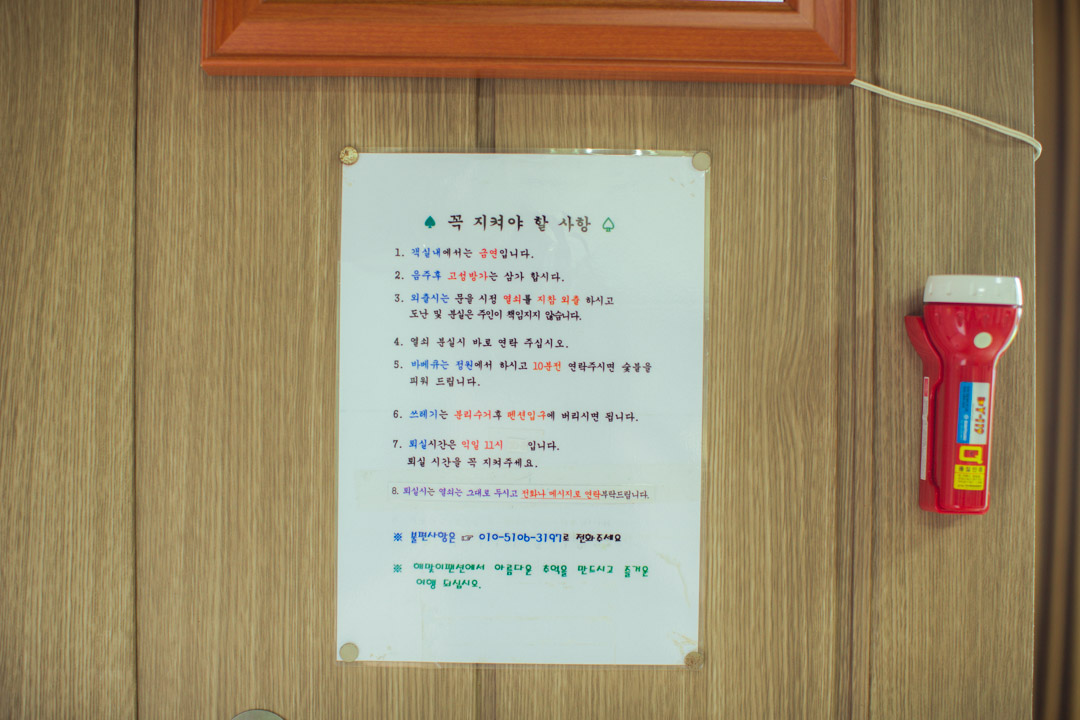 꼭 지켜야 할 사항
1. 객실내에서는 금연입니다.
2. 음주후 고성방가는 삼가 합시다.
3. 외출시는 문을 시정 열쇠를 지참 외출 하시고
도난 및 분실은 주인이 책임지지 않습니다.
4. 열쇠 분실시 바로 연락 주십시오.
5. 바베큐는 정원에서 하시고 10분전 연락주시면 숯불을
피워 드립니다.
6. 쓰레기는 분리수거후 펜션입구에 버리시면 됩니다.
7. 퇴실시간은 익일 11시 입니다.
퇴실 시간을 꼭 지켜주세요.
8. 퇴실시는 열쇠는 그대로 두시고 전화나 메시지로 연락부탁드립니다.
※ 불편사항은 ☞ 010-5106-3197로 전화주세요
※ 해맞이팬션에서 아름다운 추억을 만드시고 즐거운
여행 되십시오.